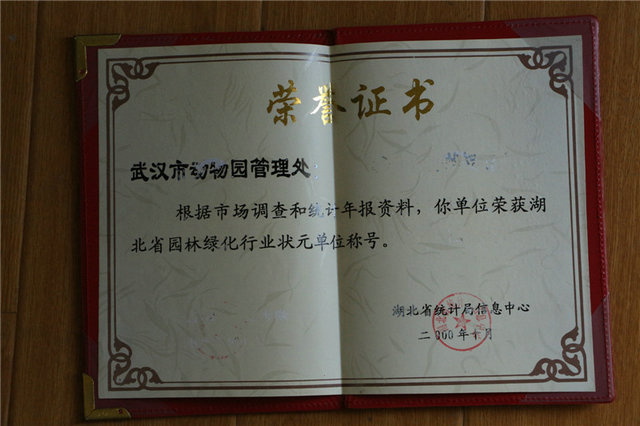 荣誉证书
武汉市动物园管理处：
根据市场调查和统计年报资料，你单位荣获湖
北省园林绿化行业状元单位称号。
湖北省统计局信息中心
二000年十月